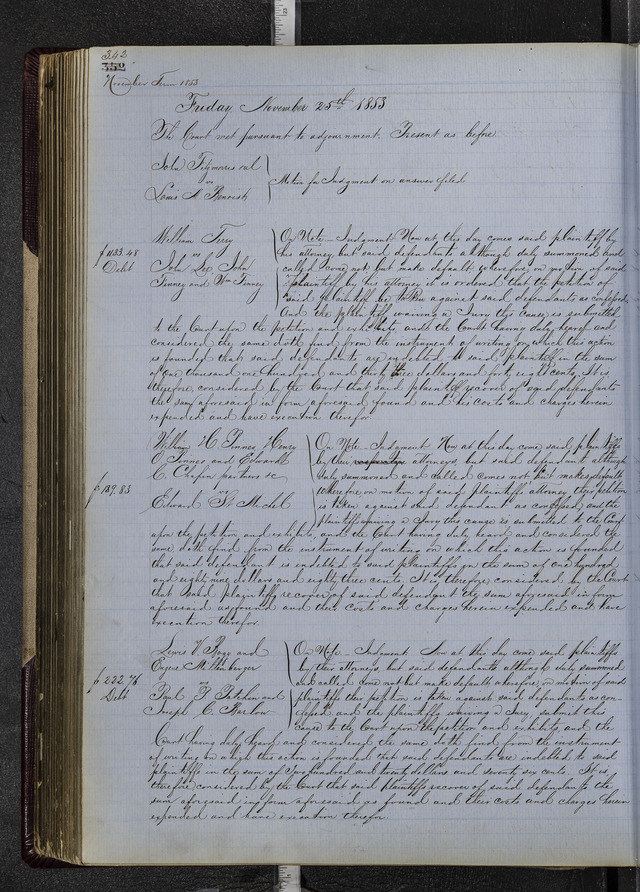 342
November Term 1853
Friday November 25th 1853
The Court met pursuant to adjournment. Present as before
John Fitzmorris
vs
Louis A. Benoish
Motion for Judgment on answer filed
William Terry
vs
John Lee John
Finney and Wm Finney
$1133.48
Debt
On Note – Judgment Now at this day comes said plaintiff by
his attorney, but said defendants although duly summoned and
called come not, but make default, wherefore, on motion of said
plaintiff by his attorney it is ordered that the petition of
said plaintiff be taken against said defendants as confessed
And the plaintiff waiving a Jury this cause is submitted
to the Court upon the petition and exhibits, and the Court having duly heard and
considered the same doth find from the instrument of writing on which this action
is founded that said defendants are indebted to said plaintiff in the sum
of one thousand one hundred and thirty three dollars and forty eight cents. It is
therefore considered by the Court that said plaintiff recover of said defendants
the sum aforesaid in form aforesaid found and his costs and charges herein
expended and have execution therefor
William H Penney Henry
C. Penney and Edward
C. Chapin partners &c
vs
Edward
$189.83
On Note – Judgment Now at this day come said plaintiffs
by their attorneys, but said defendant although
duly summoned and called comes not but makes default,
wherefore on motion of said plaintiffs attorney their petition
is taken against said defendant as confessed and the
plaintiffs waiving a Jury this cause is submitted to the Court
upon the petition and exhibits, and the Court having duly heard and considered the
same doth find from the instrument of writing on which this action is founded
that said defendant is indebted to said plaintiffs in the sum of one hundred
and eighty nine dollars and eighty three cents. It is therefore considered by the Court
that said plaintiffs recover of said defendant the sum aforesaid in form
aforesaid as found and their costs and charges herein expended and have
execution therefor.
Lewis V Bogy and
Eugene Miltenberger
vs
and
Joseph C. Barlow
$222.76
Debt
On Note – Judgment Now at this day come said plaintiffs
by their attorneys, but said defendants although duly summoned
and called come not but make default, wherefore, on motion of said
plaintiffs their petition is taken against said defendants as con-
fessed, and the plaintiffs waiving a Jury submit this
cause to the Court upon the petition and exhibits, and the
Court having duly heard and considered the same doth find from the instrument
of writing on which this action is founded that said defendants are indebted to said
plaintiffs in the sum of Two hundred and twenty two dollars and seventy six cents. It is
therefore considered by the Court that said plaintiffs recover of said defendants the
sum aforesaid in form aforesaid as found and their costs and charges herein
expended and have execution therefor